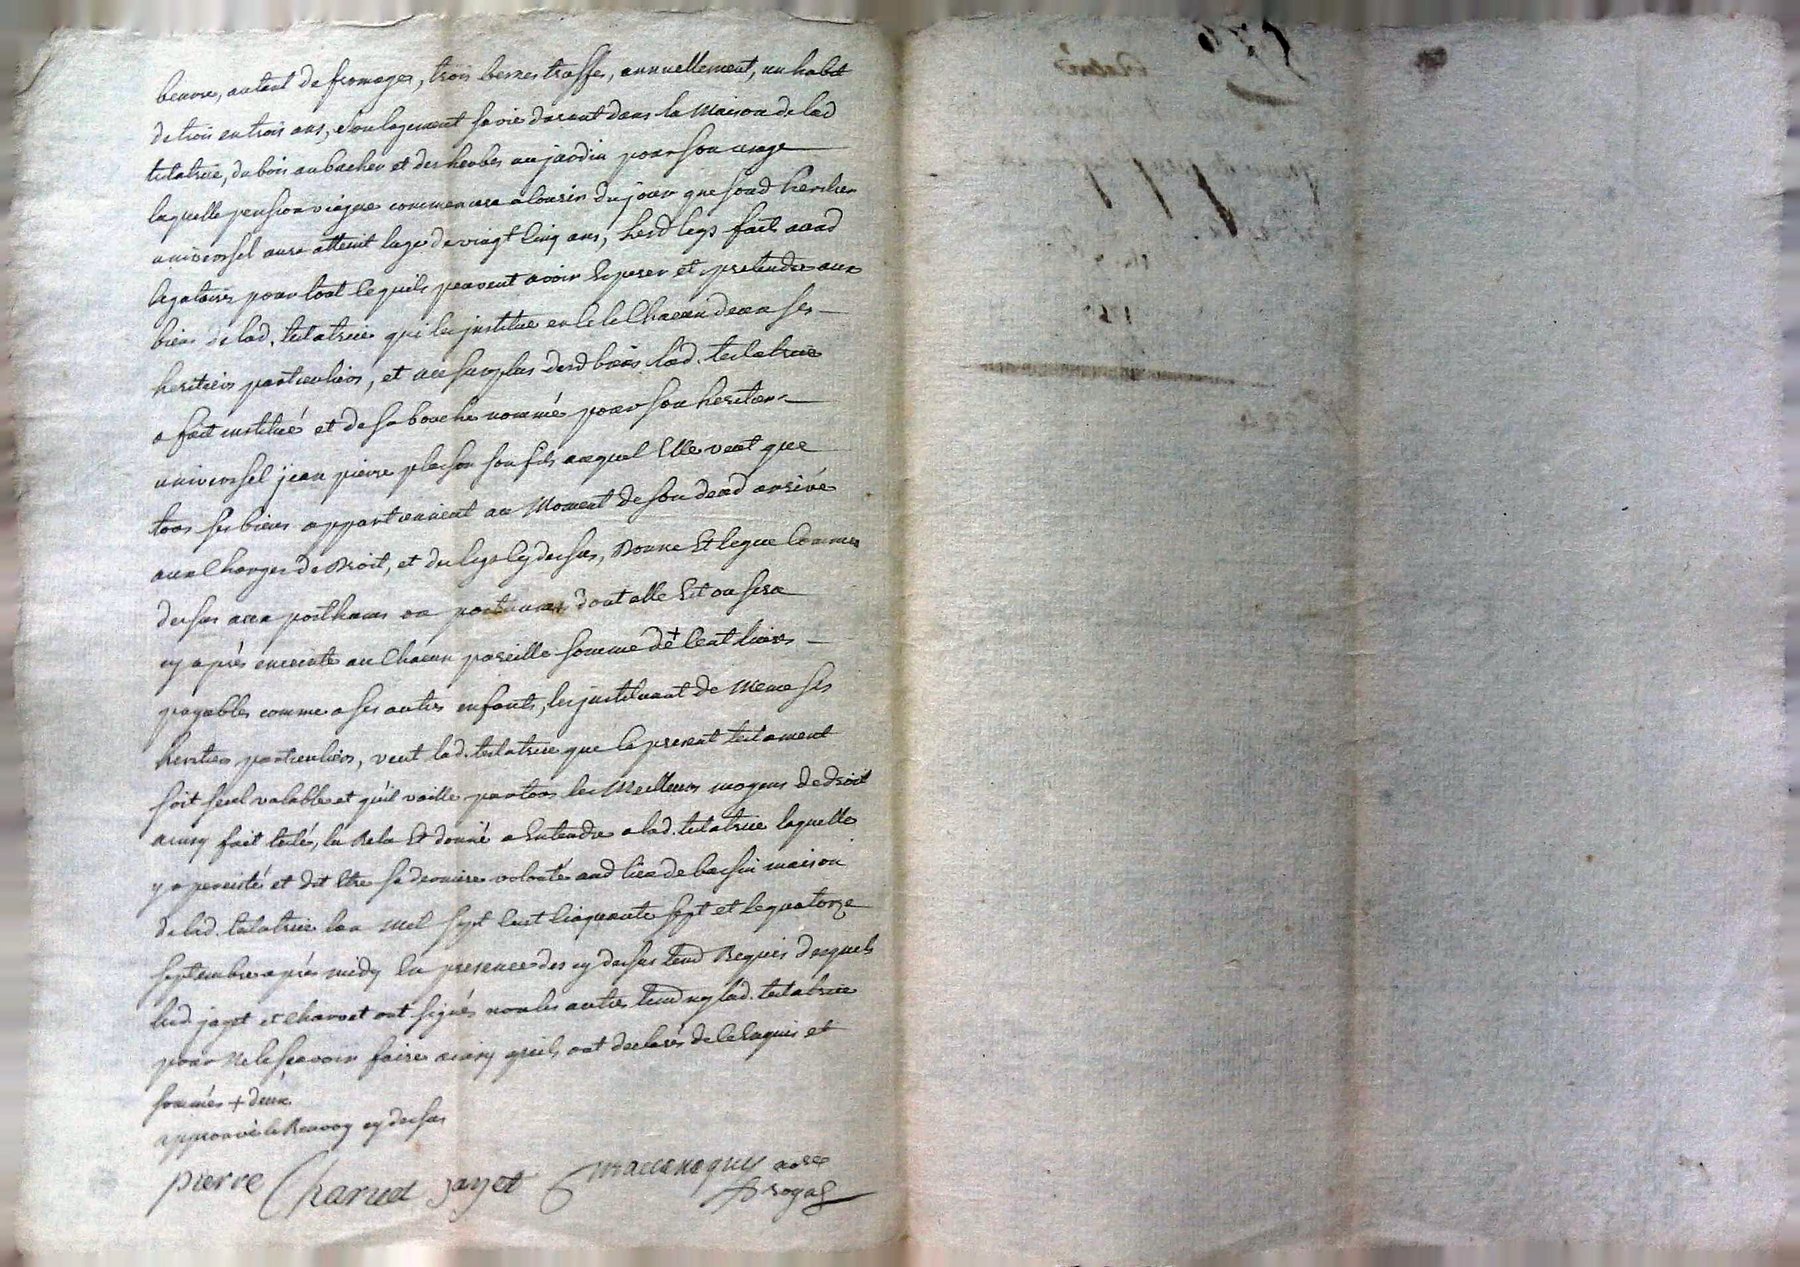 beurre, autant de fromages, trois benes traffes, annuellement, un habit
de trois en trois ans, son logement sa vie durant dans la Maison de lad
testatrice, du bois au bucher et des herbes au jardin pour son usage
laquelle pension viagere commencera a courir du jour que sond heritier
universel aura atteint lage de vingt Cinq ans, lesd legs fait auxd
legataires pour tout ce quils peuvent avoir Esperer et pretendre aux
biens de lad. testatrice qui les jnstitue en ce le Chacun deux ses
heritiers particuliers, et au surplus desd biens lad. testatrice
a fait institué et de sa bouche nommé pour son heritier
universel jean pierre plasson son fils auquel Elle veut que
tous ses biens appartiennent au Moment de son deced arrivé
aux Charges de Droit, et des legs Cy dessus, Donne Et legue Comme
dessus aux posthumes ou dont elle Est ou sera
cy après enceinte au Chacun pareille somme de + Cent livres
payables comme a ses autres enfants, les jnstituant de Meme ses
heritiers particuliers, veut lad. testatrice que le present testament
soit seul valable et quil vaille par tous les Meilleurs moyens de droit
ainsy fait testé, lu Relu Et donné a Entendre a lad. testatrice laquelle
y a percisté et dit Etre sa derniere volonté aud lieu de bassin maison
de lad. testatrice lan Mil Sept Cent Cinquante Sept et le quatorze
septembre après midy En presence des cy dessus temd Requis desquels
led. jayet et Charvet ont signés non les autres temd ny lad. testatrice
pour Ne le sçavoir faire ainsy quils ont declarés de ce Enquis et
sommés + deux
approuvé le Renvoy cy dessus
pierre Charvet jayet not.re
royal